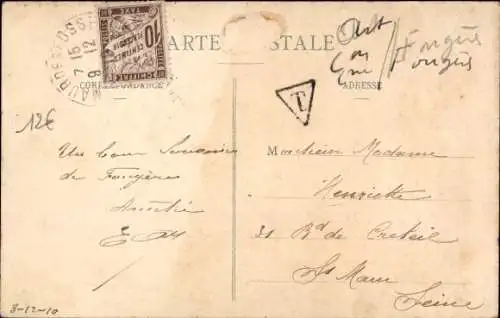 CARTE POSTALE
CORRESPONDANCE
ADRESSE
10
CENTIMES
A PERCEVOIR
CHIFFRE
TAXE
7 15
8 12
T
Fougères
12€
Un bon Souvenir
de Fougères
Amitié
Monsieur Madame
Henriette
31 Rd de Creteil
St Maur
Seine
8-12-10